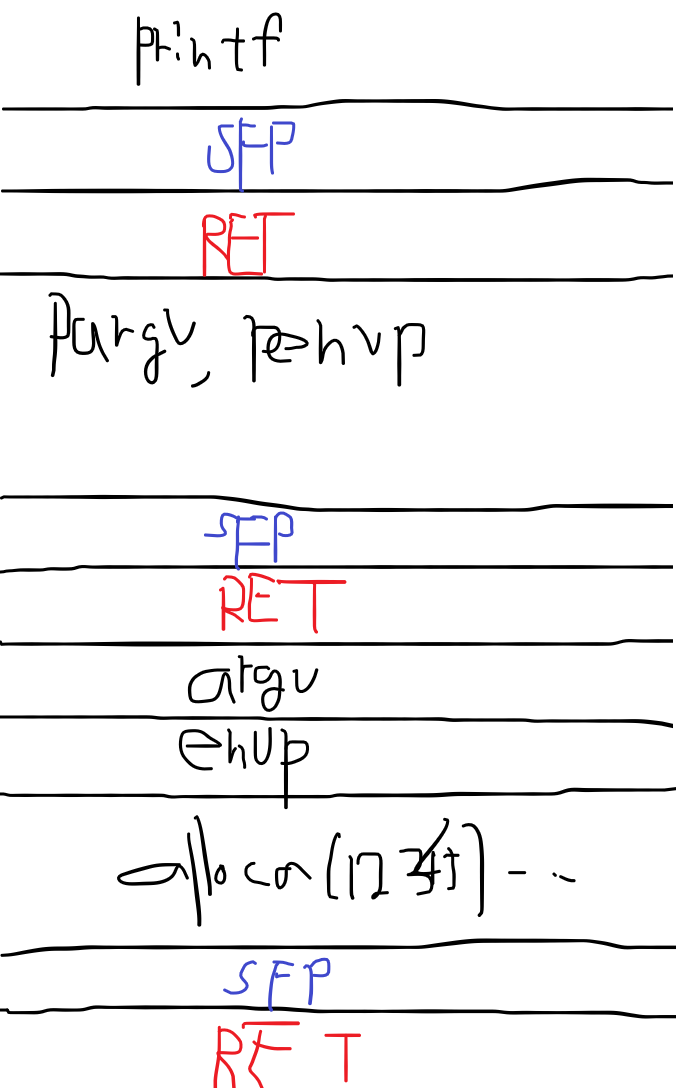 printf
SFP
RET
Pargv, penvp
SFP
RET
argv
envp
alloca(12345) - ..
SFP
RET